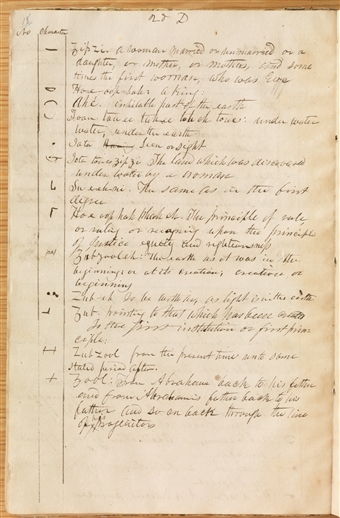 2d D
No Character
Zip zi. a woman married or unmarried or a
daughter, or mother, or mothers, and some
times the first woman, who was Eve
Hoe oop hah: a king:
Ahe. inhabitable part of the earth
Toan tau ee tahee tahee toues: under water
water, under the earth
Iata Seen or Sight
Iota toues Zip Zi The land which was discovered
under water by a woman
Su eh ni. The same as in the first
degree
Ho e oop hah Phah eh. The principle of rule
or ruling or reigning upon the principle
of Justice equity and righteousness
Zub Zool eh: The earth as it was in the
beginning or at its creation; creation or
beginning
Zub eh So be worthy as light in the earth
Zub pointing to that which has been
So the first institution or first prin
ciple:
Zub Zool from the present time unto some
stated period before.
Zool: From Abraham back to his father
and from Abraham's father back to his
father and so on back through the line
of his Progenitors